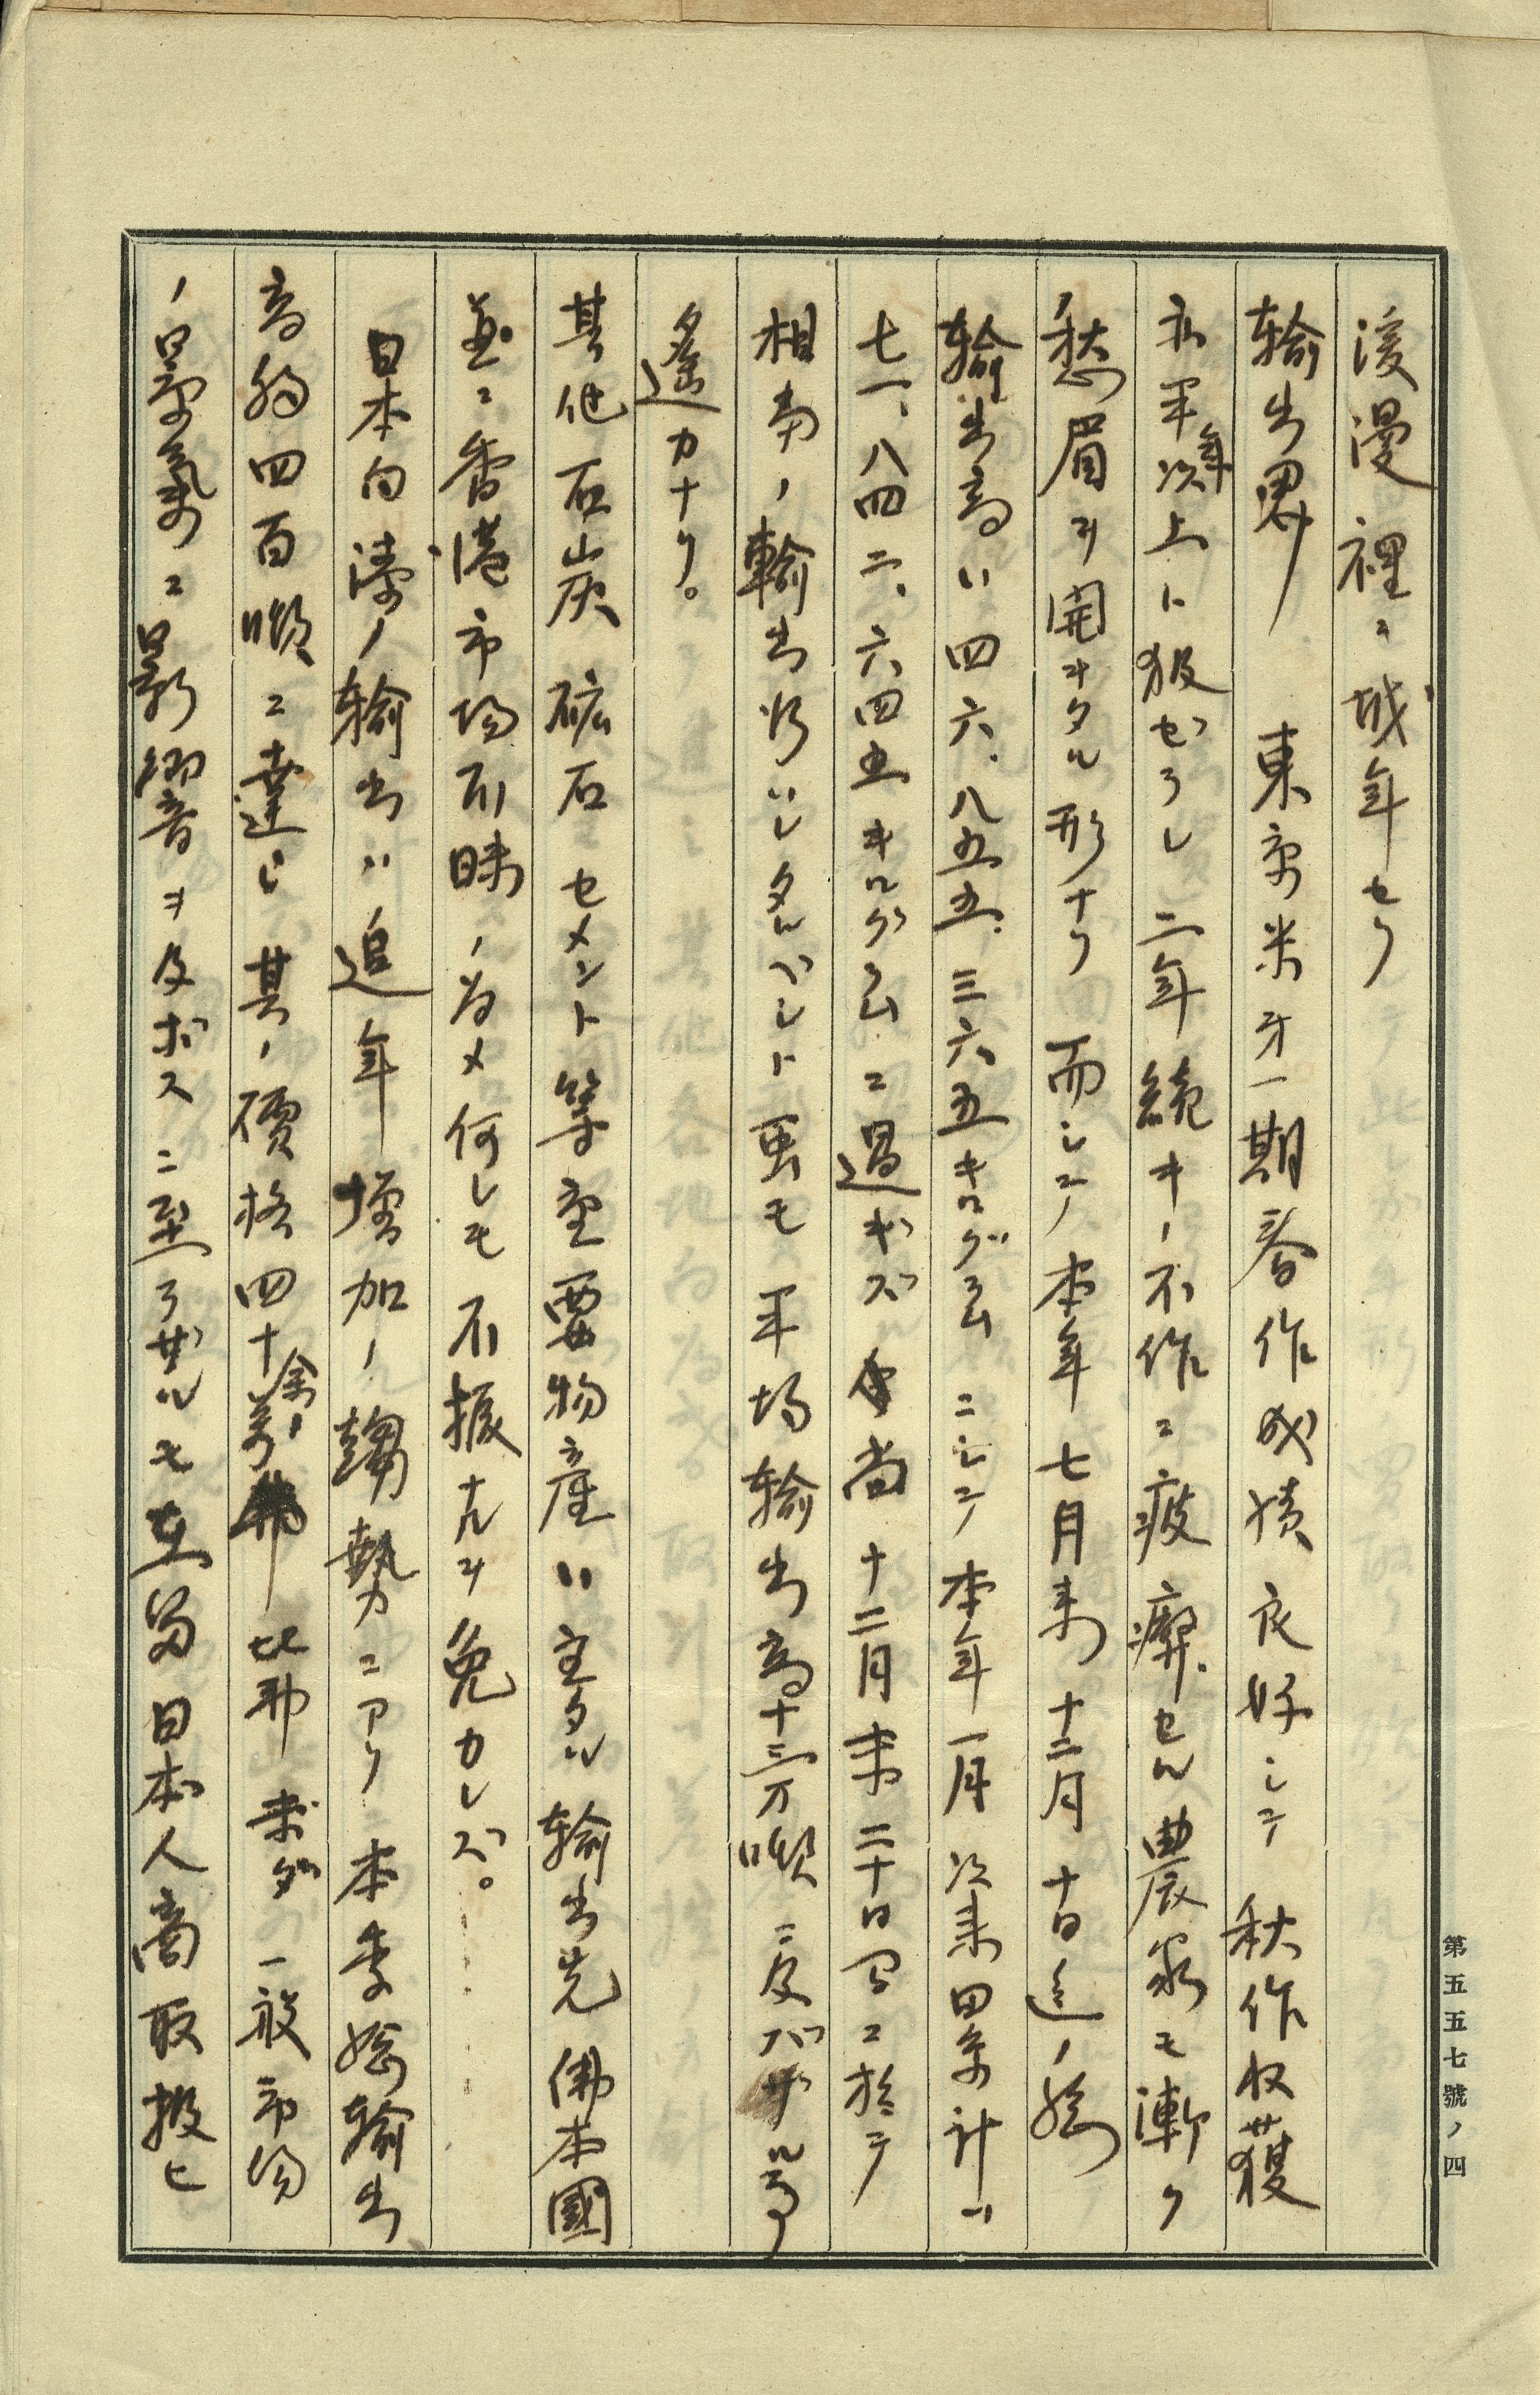 漫裡ニ越年セリ
輸出界 東京米才一期春作成績良好ニシテ秋作収獲
亦平年次上ト扱セラレ二年続キノ不作ニ疲弊セル農家モ漸ク
愁眉ヲ開キタル形ナリ而シテ本年七月末十二月十日迄ノ総
輸出高ハ四六、八五五、三六五キログラムニシテ本年一月次来累計ハ
七一、八四二、六四五キログラムニ過ギズ尚十二月末二十日間ニ於テ
相当ノ輸出ハシタルベシト虽モ平均輸出高十三万噸ニ及バザル事
遙カナリ。
其他石炭砿石セメント等重要物産ハ主タル輸出先佛本國
並ニ香港市場不味ノ為メ何レモ不振ナルヲ免カレズ。
日本向漆ノ輸出ハ追年増加ノ趨勢ニアリ本季総輸出
高約四百噸ニ達シ其ノ價格四十余万比弗未ダ一般市場
ノ景氣ニ影響ヲ及ボスニ至ラザルモ在留日本人商取扱ヒ
第五五七號ノ四